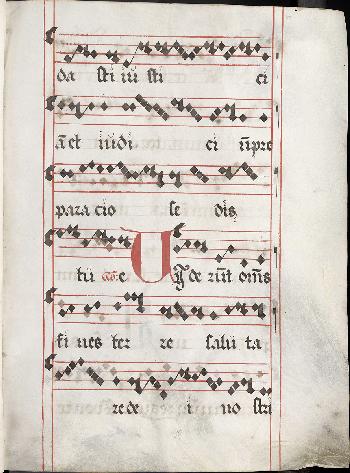 da sti iu sti ci
ā et iudi ci ūpre
para cio se dis
tu e V I de rūt om̄s
fi nes ter re salu ta
re de i no stri